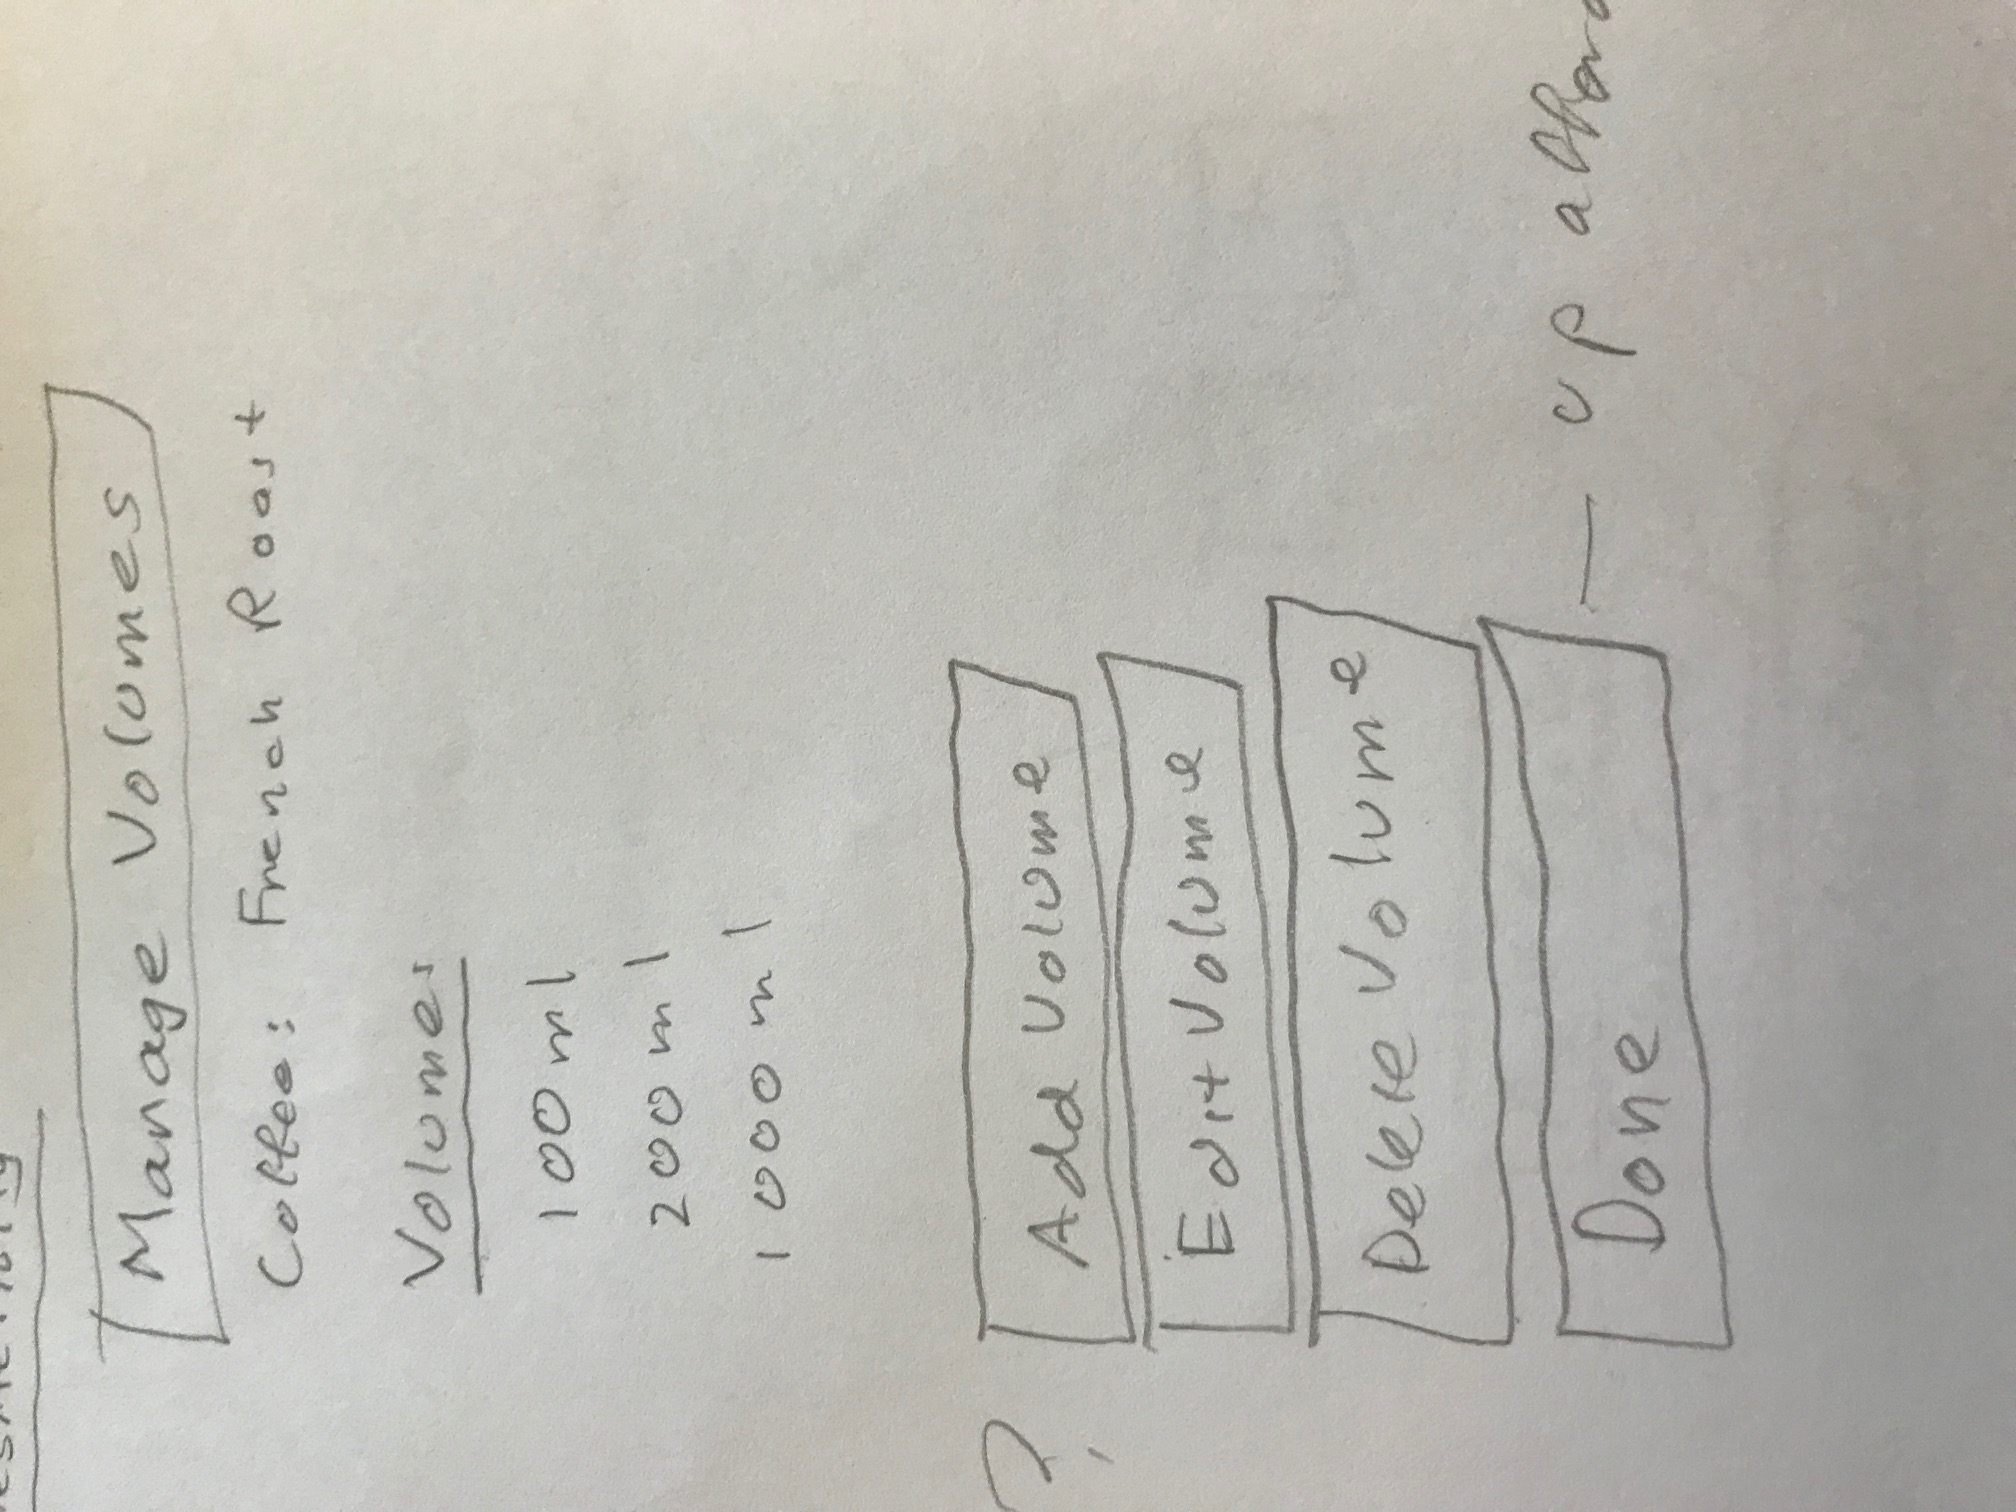 Manage Volumes
Coffee: French Roast
Volumes
100 ml
200 ml
1000 ml
?
Add Volume
Edit Volume
Delete Volume
Done — up